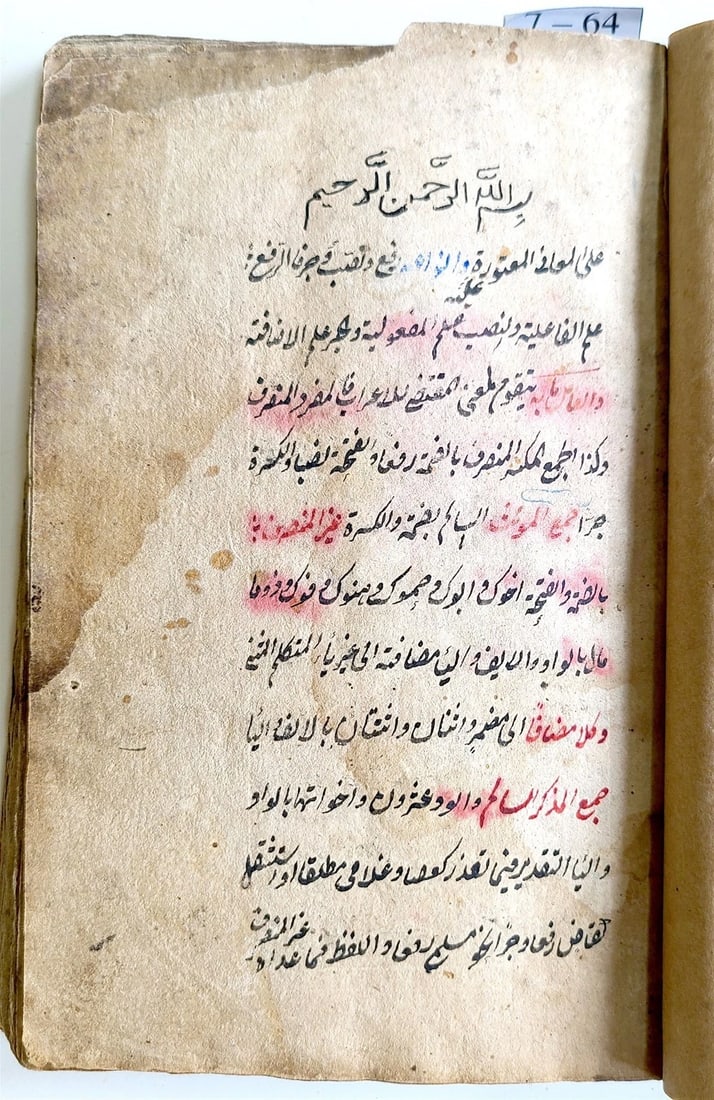 7 – 64
بسم الله الرحمن الرحيم
على المعانى المعتورة وانواعه رفع ونصب و جر فالرفع
علم الفاعلية والنصب علم المفعولية والجر علم الاضافة
والعامل ما به يتقوم المعنى المقتضى للاعراب فالمفرد المنصرف
وكذا الجمع المكسر المنصرف بالضمة رفعا والفتحة نصبا والكسرة
جرا جمع المؤنث السالم بضمة والكسرة غير المنصرف
بالضمة والفتحة اخوك و ابوك و حموك و هنوك و فوك و ذو ما
مال بالواو والالف و اليا مضافة الى غير يا المتكلم المثنى
وكلا مضافا الى مضمر واثنان واثنتان بالالف و اليا
جمع المذكر السالم والو وعشرون واخواتها بالواو
واليا التقدير فيما تعذر كعصا وغلامى مطلقا او استثقل
كقاض رفعا وجرا ونحو مسلمى رفعا واللفظ فيما عداه
غير المنصرف